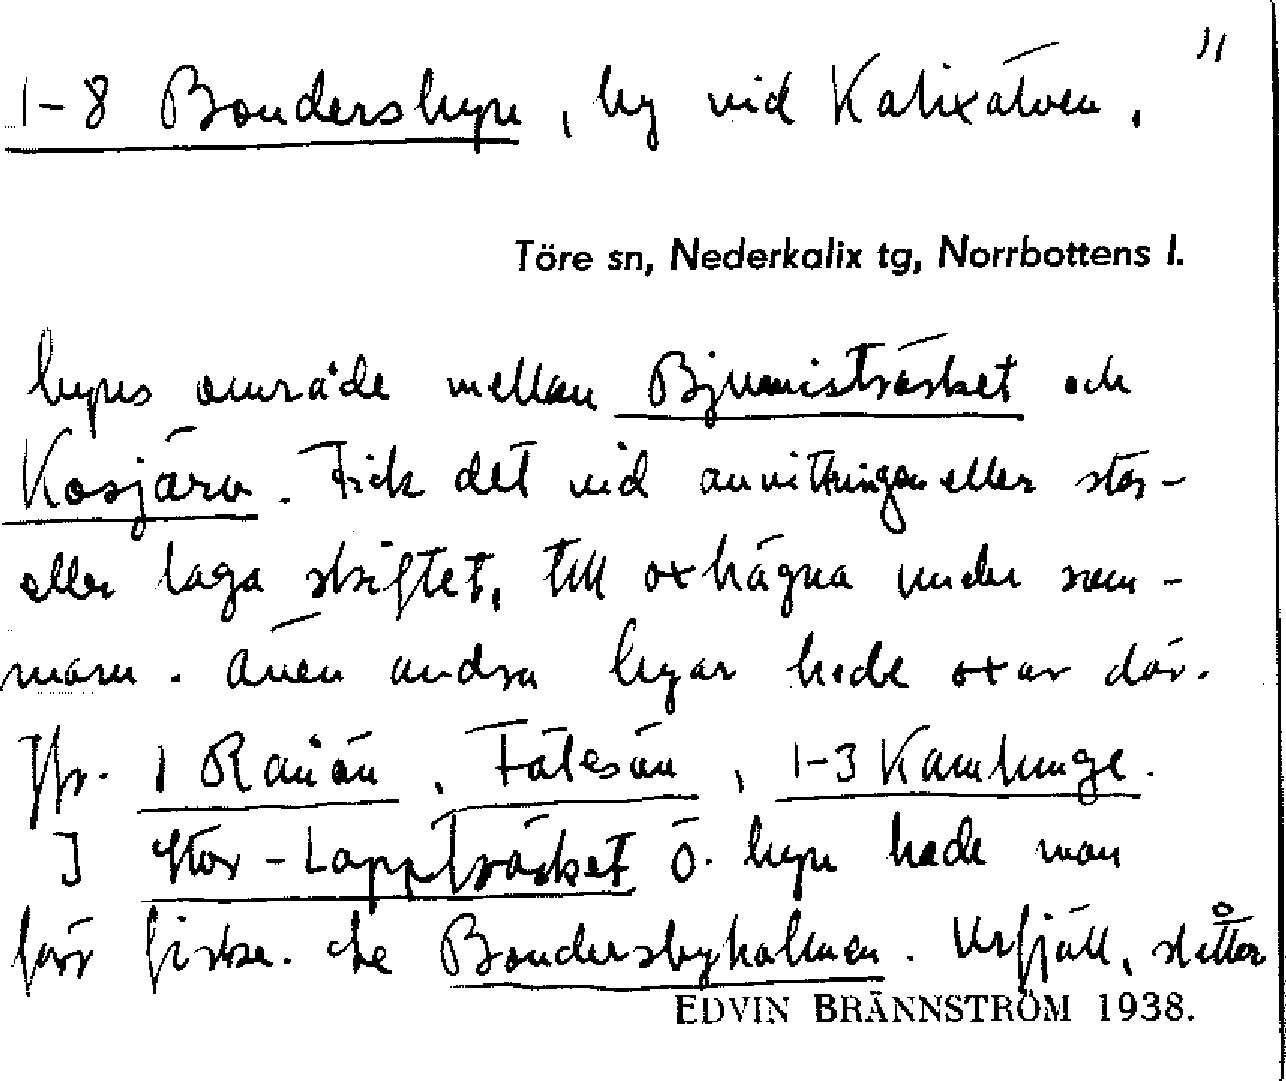 11
1-8 Bondersbyn, by vid Kalixälven,
Töre sn, Nederkalix tg, Norrbottens l.
byns område mellan Bjumisträsket och
Kosjärv. Fick det vid avvittringen eller stor-
eller laga skiftet, till oxhägna under som-
maren. Även andra byar hade oxar där.
Jfr. 1 Rånön, Fätesön, 1-3 Kamlunge.
I Stor-Lappträsket Ö. byn hade man
förr fiske. Se Bondersbyholmen. Urfjäll, slåtter
EDVIN BRÄNNSTRÖM 1938.